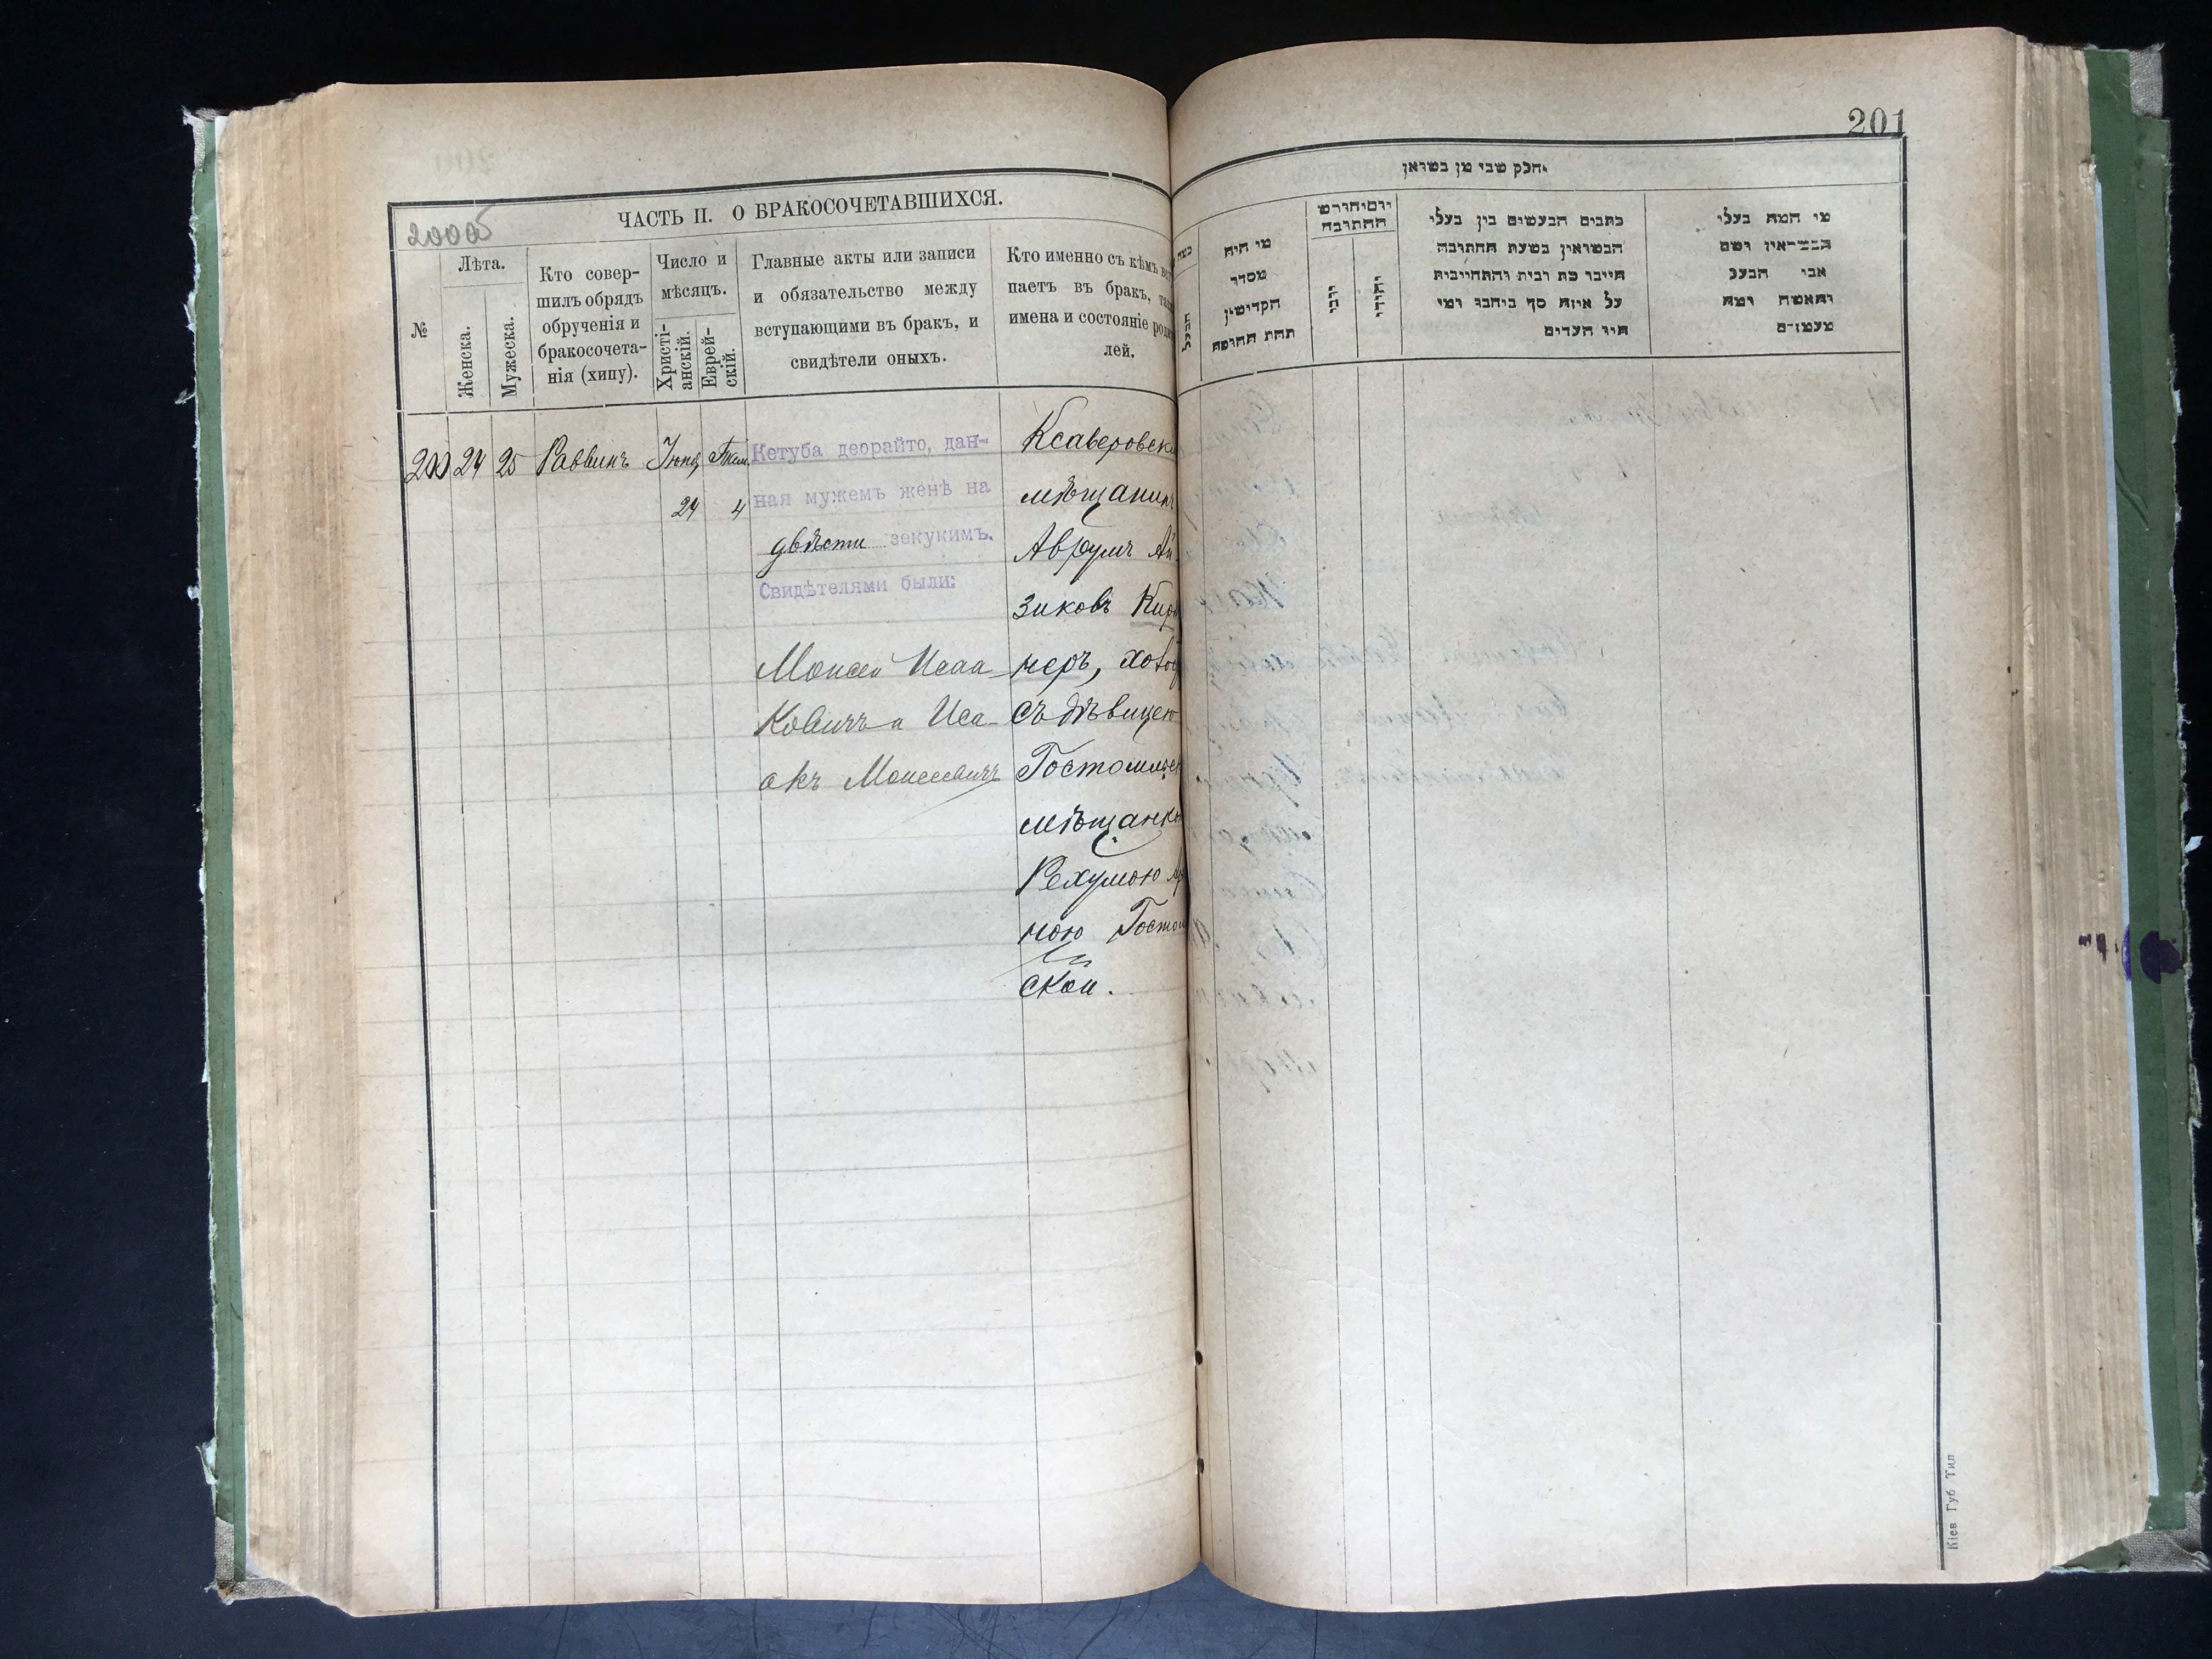 201
2000б
ЧАСТЬ II. О БРАКОСОЧЕТАВШИХСЯ.
№
Лѣта.
Женска.
Мужеска.
Кто совер-
шилъ обрядъ
обрученія и
бракосочета-
нія (хипу).
Число и
мѣсяцъ.
Христі-
анскій.
Еврей-
скій.
Главные акты или записи
и обязательство между
вступающими въ бракъ, и
свидѣтели оныхъ.
Кто именно съ кѣмъ
паетъ въ бракъ,
имена и состояніе
лей.
200 24 25 Раввинъ Іюня
24 4
Кетуба деорайто, дан-
ная мужемъ женѣ на
двѣсти зекукимъ.
Свидѣтелями были:
Моисей Исаа
ковичъ а Иса-
акъ Моисеевичъ
Ксаверовск
мѣщанинъ
Аврумъ Ай-
зиковъ
неръ, холос
съ дѣвицею
Гостомльск
мѣщанк
Рехумою
ною Гостом
ской.
חלק שני מן בשואן
מי היה
מסדר
הקדישין
תחת החופה
יום וחודש
החתובה
כתבים הנעשים בין בעלי
הנשואין בשעת החתובה
חייבו כת רבית והתחייבות
על איזה סך ביחבו ומי
היו העדים
מי המה בעלי
הנשואין ושם
אבי הבעל
והאשה ומה
מעמדם
Кіев Губ Тип